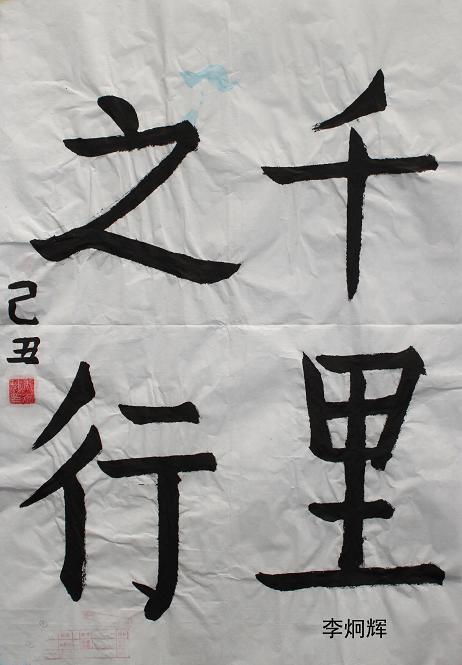 千里
之行
己丑
李炯辉